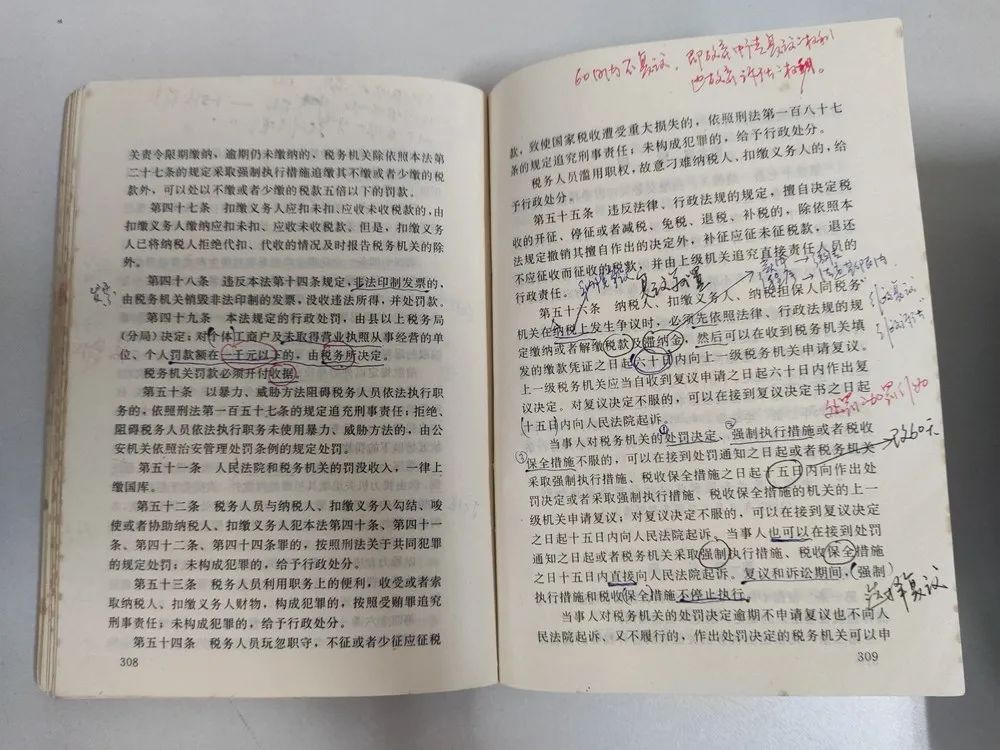 关责令限期缴纳，逾期仍未缴纳的、税务机关除依照本法第
二十七条的规定采取强制执行措施追缴其不缴或者少缴的税
款外，可以处以不缴或者少缴的税款五倍以下的罚款。
第四十七条　扣缴义务人应扣未扣、应收未收税款的，由
扣缴义务人缴纳应扣未扣、应收未收税款。但是，扣缴义务
人已将纳税人拒绝代扣、代收的情况及时报告税务机关的除
外。
第四十八条　违反本法第十四条规定，非法印制发票的，
由税务机关销毁非法印制的发票，没收违法所得，并处罚款。
第四十九条　本法规定的行政处罚，由县以上税务局
（分局）决定；对个体工商户及未取得营业执照从事经营的单
位、个人罚款额在一千元以下的，由税务所决定。
税务机关罚款必须开付收据。
第五十条　以暴力、威胁方法阻碍税务人员依法执行职
务的，依照刑法第一百五十七条的规定追究刑事责任；拒绝、
阻碍税务人员依法执行职务未使用暴力、威胁方法的，由公
安机关依照治安管理处罚条例的规定处罚。
第五十一条　人民法院和税务机关的罚没收入，一律上
缴国库。
第五十二条　税务人员与纳税人、扣缴义务人勾结、唆
使或者协助纳税人、扣缴义务人犯本法第四十条、第四十一
条、第四十二条、第四十四条罪的，按照刑法关于共同犯罪
的规定处罚；未构成犯罪的，给予行政处分。
第五十三条　税务人员利用职务上的便利，收受或者索
取纳税人、扣缴义务人财物，构成犯罪的，按照受贿罪追究
刑事责任；未构成犯罪的，给予行政处分。
第五十四条　税务人员玩忽职守，不征或者少征应征税
308
60日内不复议，即放弃申请复议之权利
也放弃诉讼之权利。
款，致使国家税收遭受重大损失的，依照刑法第一百八十七
条的规定追究刑事责任；未构成犯罪的，给予行政处分。
税务人员滥用职权，故意刁难纳税人、扣缴义务人的，给
予行政处分。
第五十五条　违反法律、行政法规的规定，擅自决定税
收的开征、停征或者减税、免税、退税、补税的，除依照本
法规定撤销其擅自作出的决定外，补征应征未征税款，退还
不应征收而征收的税款，并由上级机关追究直接责任人员的
行政责任。
复议前置
第五十六条　纳税人、扣缴义务人、纳税担保人同税务
机关在纳税上发生争议时，必须先依照法律、行政法规的规
定缴纳或者解缴税款及滞纳金，然后可以在收到税务机关填
发的缴款凭证之日起六十日内向上一级税务机关申请复议。
上一级税务机关应当自收到复议申请之日起六十日内作出复
议决定。对复议决定不服的，可以在接到复议决定书之日起
十五日内向人民法院起诉。
① ②
当事人对税务机关的处罚决定、强制执行措施或者税收
③保全措施不服的，可以在接到处罚通知之日起或者税务机关
改60天
采取强制执行措施、税收保全措施之日起十五日内向作出处
罚决定或者采取强制执行措施、税收保全措施的机关的上一
级机关申请复议；对复议决定不服的，可以在接到复议决定
之日起十五日内向人民法院起诉。当事人也可以在接到处罚
通知之日起或者税务机关采取强制执行措施、税收保全措施
之日起十五日内直接向人民法院起诉。复议和诉讼期间，（强制）
执行措施和税收保全措施不停止执行。
选择复议
当事人对税务机关的处罚决定逾期不申请复议也不向人
民法院起诉、又不履行的，作出处罚决定的税务机关可以申
309